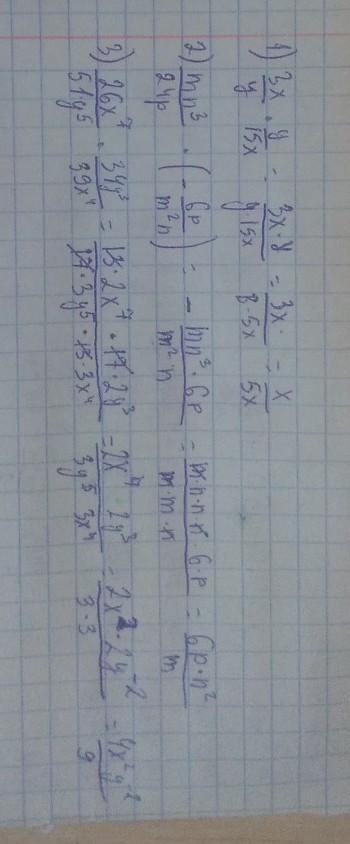 1) 3x/y · y/15x = 3x·y/y·15x = 3x·/3·5x = x/5x
2) mn³/24p · (- 6p/m²n) = - mn³·6p/m²·n = m·n·n·n 6·p/m·m·n = 6p·n²/m
3) 26x⁷/51y⁵ · 34y³/39x⁴ = 13·2x⁷·17·2y³/17·3y⁵·13·3x⁴ = 2x⁷ 2y³/3y⁵ 3x⁴ = 2x³·2y⁻²/3·3 = 4x²y⁻²/9